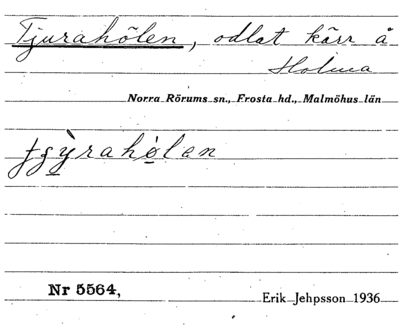 Tjurahölen, odlat kärr å
Holma
Norra Rörums sn., Frosta hd., Malmöhus län
Nr 5564,
Erik Jehpsson 1936